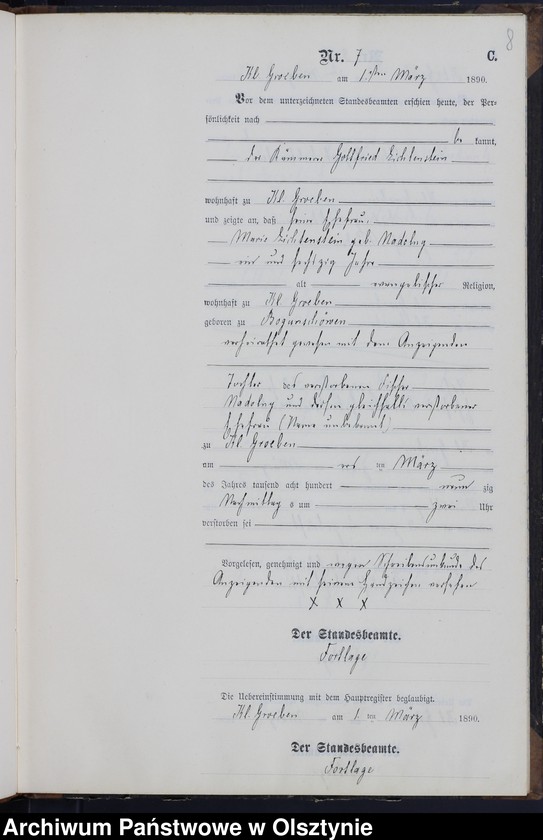 8
Nr. 7 C.
Kl. Groeben am 1. ten März 1890.
Vor dem unterzeichneten Standesbeamten erschien heute, der Per=
sönlichkeit nach
be kannt,
der Kämmerer Gottfried Lichtenstein
wohnhaft zu Kl. Groeben
und zeigte an, daß seine Ehefrau
Marie Lichtenstein geb. Nadolny
vier und sechszig Jahre
alt evangelischer Religion,
wohnhaft zu Kl. Groeben
geboren zu
verheirathet gewesen mit dem Anzeigenden
Tochter des verstorbenen Fischer
Nadolny und dessen gleichfalls verstorbener
Ehefrau (Name unbekannt)
zu Kl. Groeben
am ers ten März
des Jahres tausend acht hundert neun zig
Nachmittag s um zwei Uhr
verstorben sei
Vorgelesen, genehmigt und wegen Schreibensunkunde des
Anzeigenden mit seinem Handzeichen versehen
X X X
Der Standesbeamte.
Fortlage
Die Uebereinstimmung mit dem Hauptregister beglaubigt.
Kl. Groeben am 1. ten März 1890.
Der Standesbeamte.
Fortlage
Archiwum Państwowe w Olsztynie